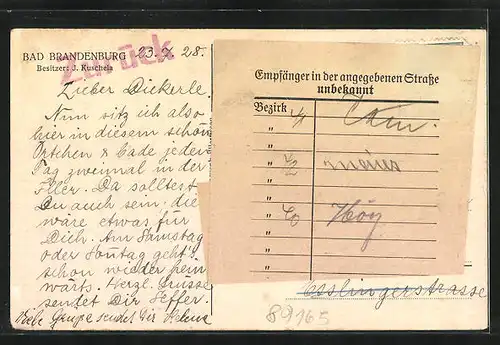 BAD BRANDENBURG 23. 7. 28.
Besitzer: J. Kuschela
Zurück
Lieber Dickerle.
Nun sitz ich also
hier in diesem schön
Örtchen & bade jeden
Tag zweimal in der
Eller. Da solltest
Du auch sein. die
wäre etwas für
Dich. Am Samstag
oder Sonntag geht's
schon wieder heim
wärts. Herzl. Grüsse
sendet Dir Seffer.
Viele Grüsse sendet Dir
Empfänger in der angegebenen Straße
unbekannt
Bezirk
"
"
"
"
"
"
"
Hesslingerstrasse
89165